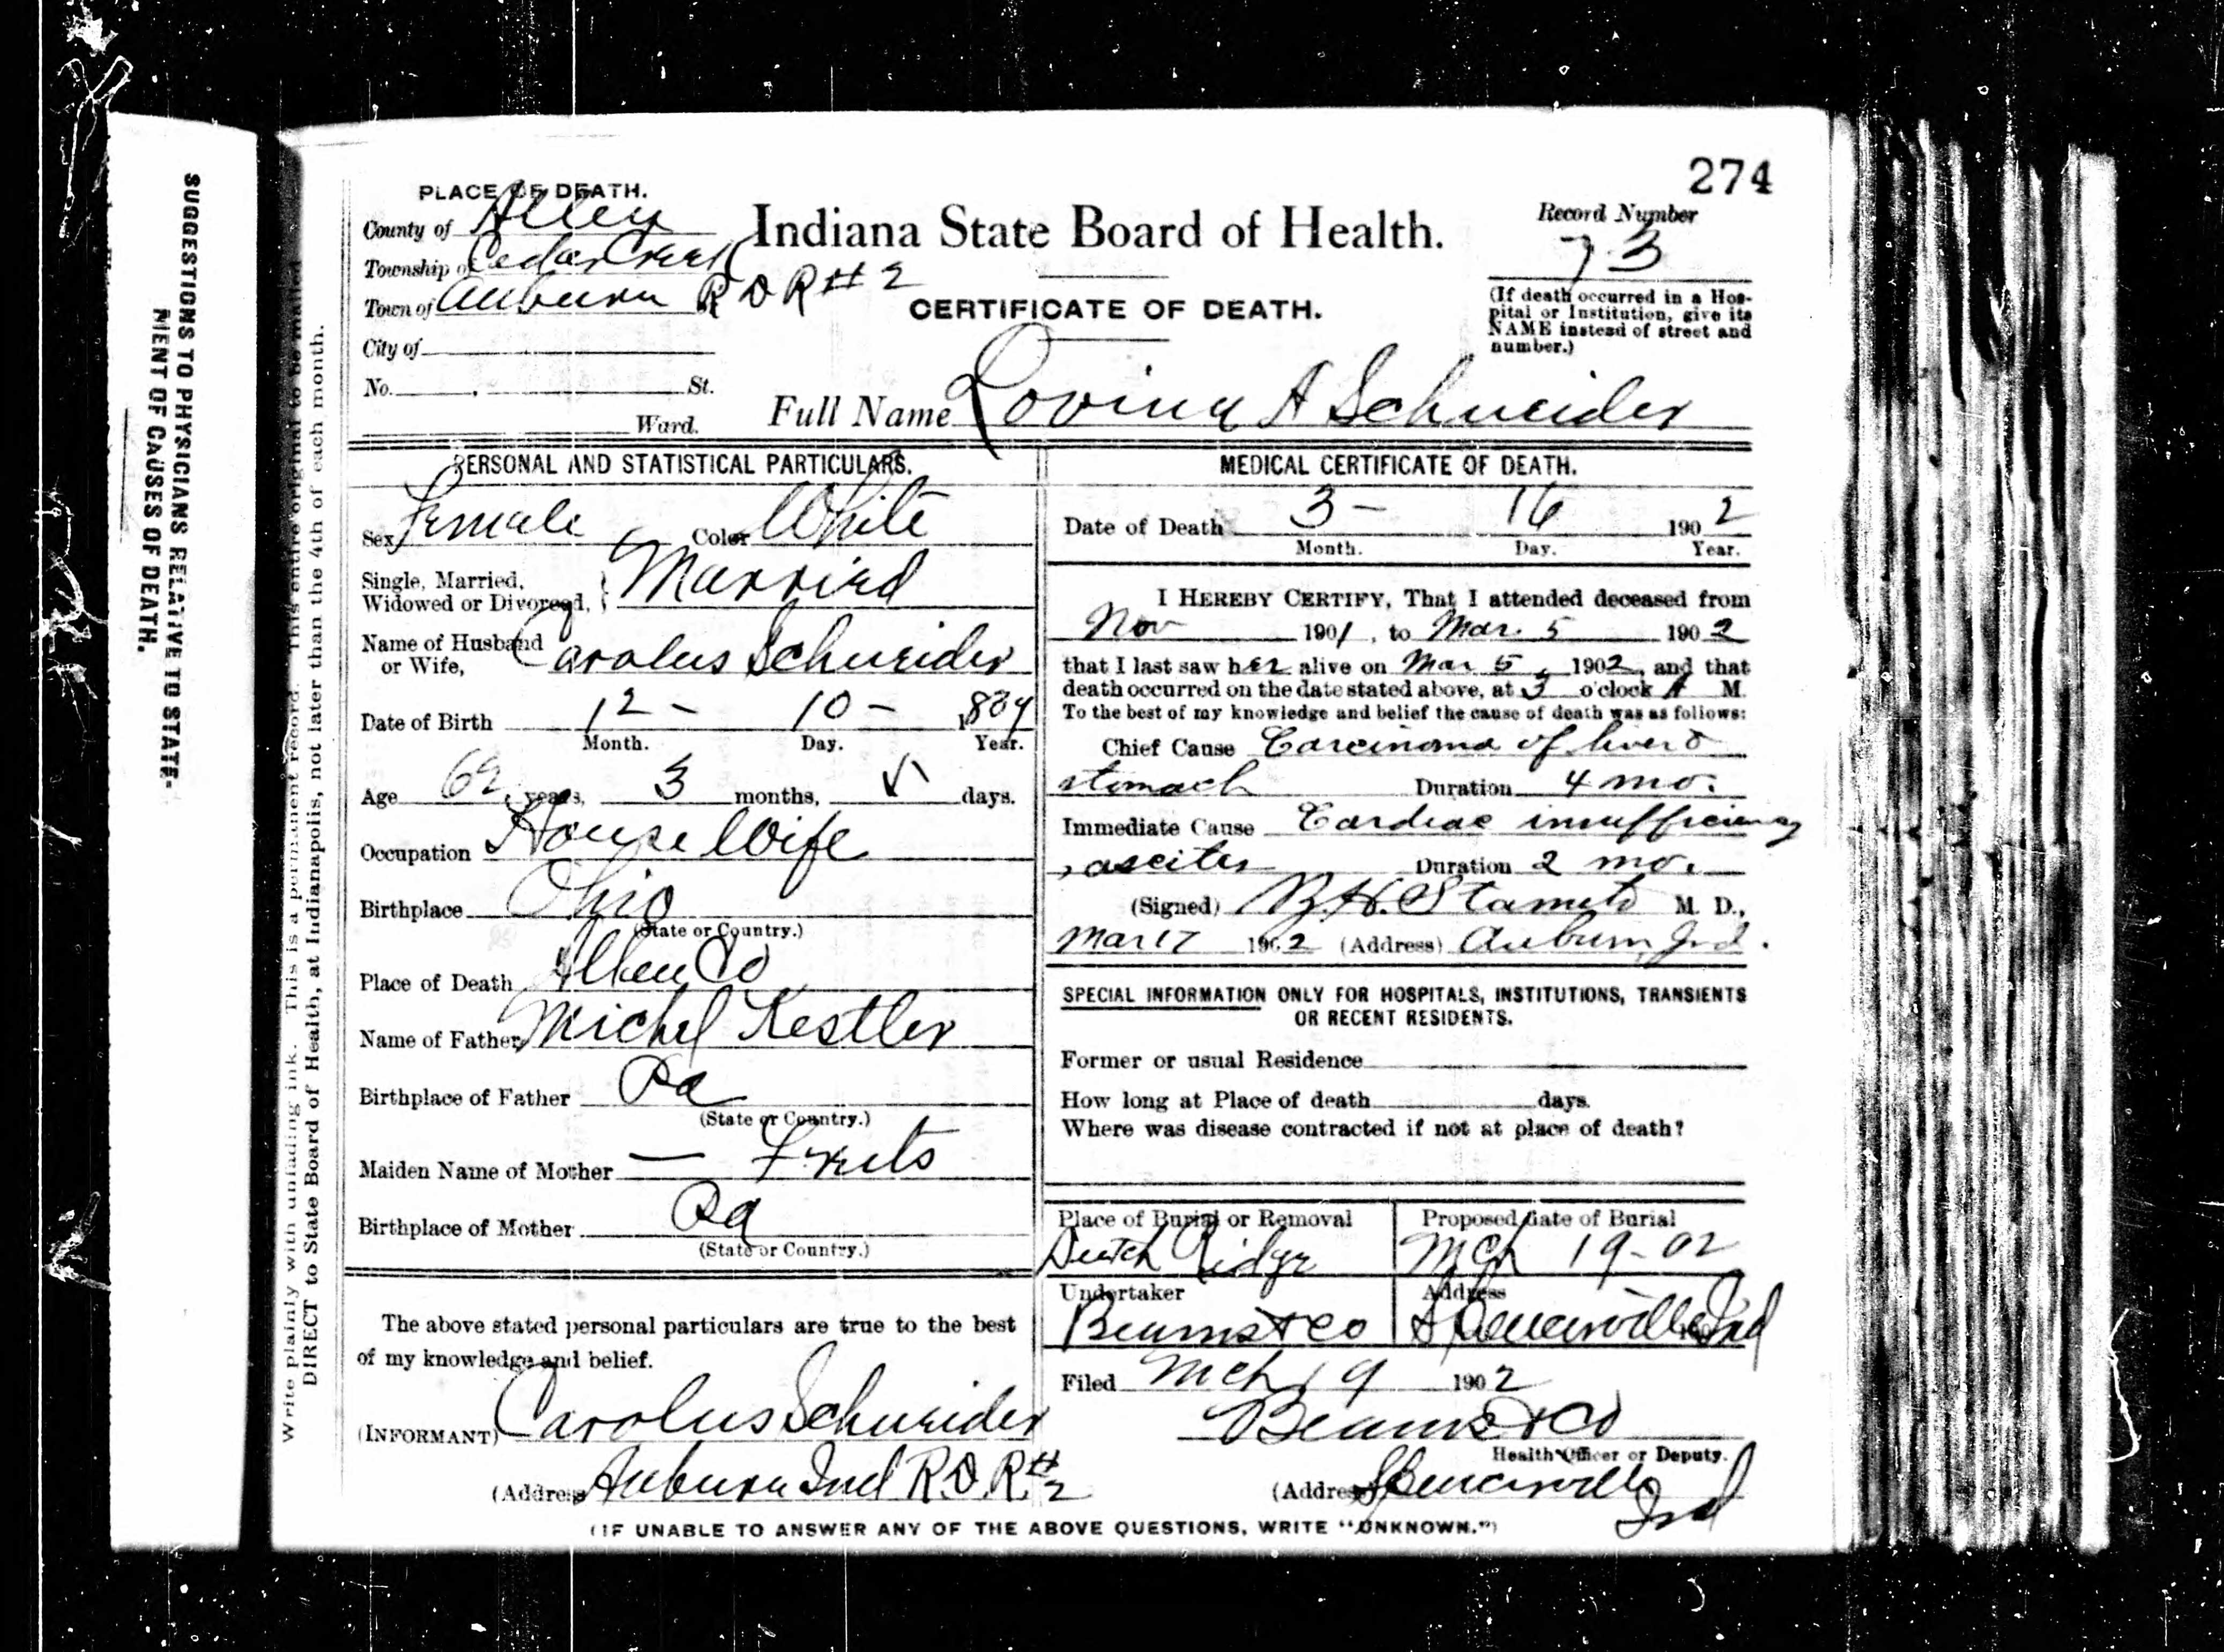 274
SUGGESTIONS TO PHYSICIANS RELATIVE TO STATE-
MENT OF CAUSES OF DEATH.
Write plainly with unfading ink. This is a permanent record. This entire original to be mailed
DIRECT to State Board of Health, at Indianapolis, not later than the 4th of each month.
PLACE OF DEATH.
County of Allen
Township of Cedar Creek
Town of Auburn R D R # 2
City of
No. St.
Ward.
Indiana State Board of Health.
CERTIFICATE OF DEATH.
Record Number
73
(If death occurred in a Hos-
pital or Institution, give its
NAME instead of street and
number.)
Full Name Lovina A Schneider
PERSONAL AND STATISTICAL PARTICULARS.
Sex Female Color White
Single, Married,
Widowed or Divorced, } Married
Name of Husband
or Wife, Carolus Schneider
Date of Birth 12 - 10 - 1839
Month. Day. Year.
Age 62 years, 3 months, days.
Occupation House Wife
Birthplace Ohio
(State or Country.)
Place of Death Allen Co
Name of Father Michel Kestler
Birthplace of Father Pa
(State or Country.)
Maiden Name of Mother —
Birthplace of Mother Pa
(State or Country.)
The above stated personal particulars are true to the best
of my knowledge and belief.
(INFORMANT) Carolus Schneider
(Address Auburn Ind R.D.R. # 2
MEDICAL CERTIFICATE OF DEATH.
Date of Death 3 - 16 1902
Month. Day. Year.
I HEREBY CERTIFY, That I attended deceased from
Nov 1901, to Mar. 5 1902
that I last saw her alive on Mar 5, 1902, and that
death occurred on the date stated above, at 3 o'clock A M.
To the best of my knowledge and belief the cause of death was as follows:
Chief Cause Carcinoma of liver &
stomach Duration 4 mo.
Immediate Cause Cardiac insufficiency
, ascites Duration 2 mo.
(Signed) M. D.,
Mar 17 1902 (Address) Auburn, Ind.
SPECIAL INFORMATION ONLY FOR HOSPITALS, INSTITUTIONS, TRANSIENTS
OR RECENT RESIDENTS.
Former or usual Residence
How long at Place of death days.
Where was disease contracted if not at place of death?
Place of Burial or Removal
Dutch Ridge
Proposed date of Burial
Mch 19-02
Undertaker
Beams & Co
Address
Spencerville Ind
Filed Mch 19 1902
Beams & Co
Health Officer or Deputy.
(Address Spencerville
Ind
(IF UNABLE TO ANSWER ANY OF THE ABOVE QUESTIONS, WRITE "UNKNOWN.")